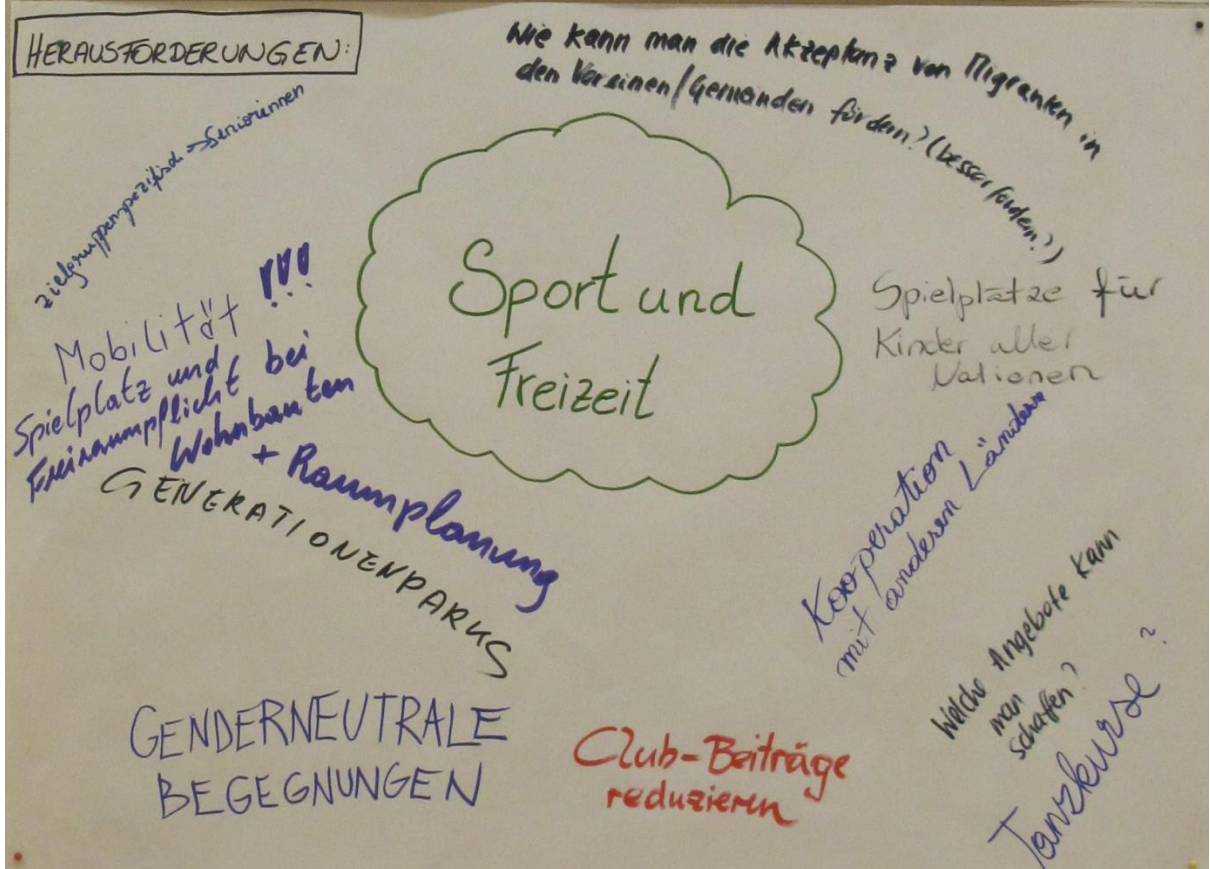 HERAUSFORDERUNGEN:
Wie kann man die Akzeptanz von Migranten in
den Vereinen/Gemeinden fördern? (besser fordern?)
zielgruppenspezifisch → Seniorinnen
Sport und
Freizeit
Mobilität !!!
Spielplatz und
Freiraumpflicht bei
Wohnbauten
+ Raumplanung
GENERATIONENPARKS
Spielplätze für
Kinder aller
Nationen
Kooperation
mit anderen Ländern
Welche Angebote kann
man
schaffen?
Tanzkurse?
GENDERNEUTRALE
BEGEGNUNGEN
Club-Beiträge
reduzieren